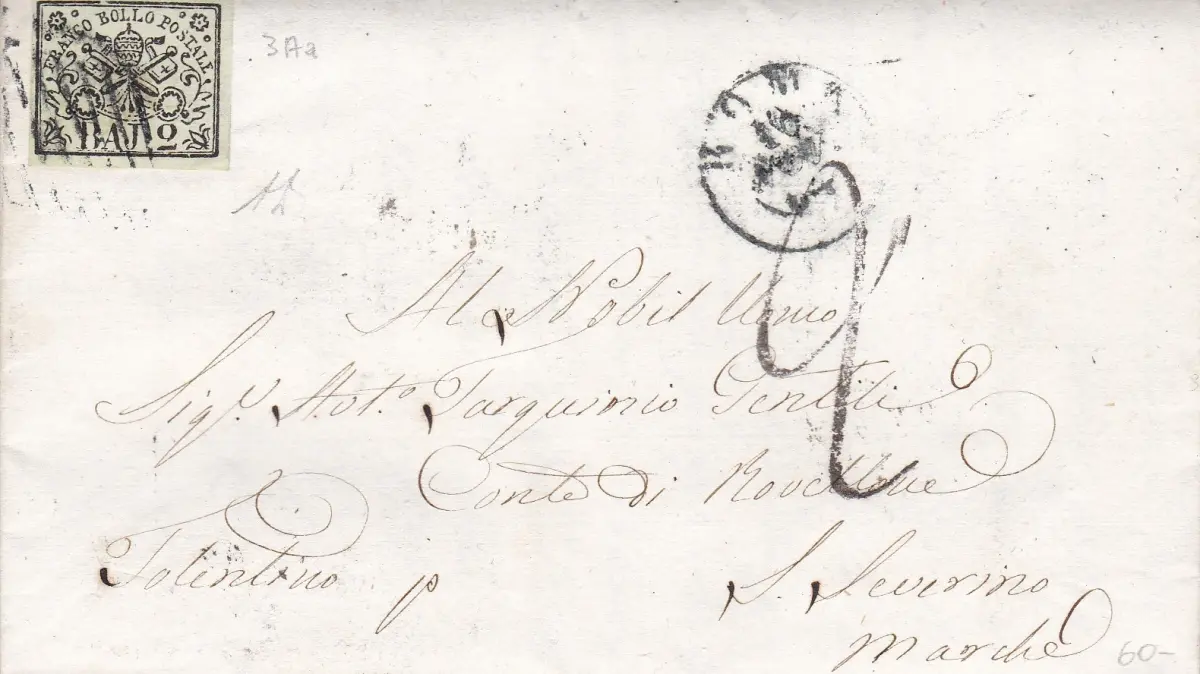 FRANCO BOLLO POSTALE
BAJ 2
3Aa
ROMA
Al Nobil Uomo
Sig.r Tarquinio Gentili
Conte di Rovellone
Tolentino p S. Severino
Marche
60-